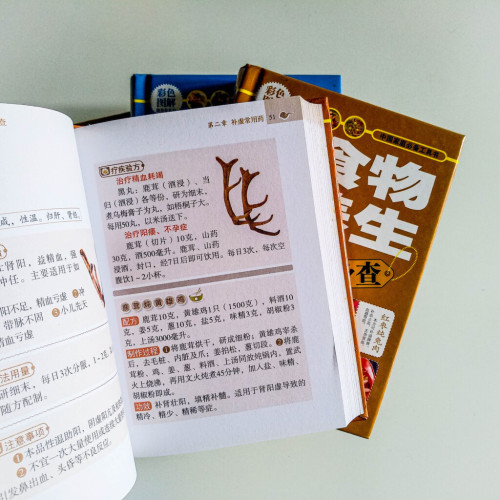 第二章 补虚常用药 51
疗疾验方
治疗精血耗竭
黑丸：鹿茸（酒浸）、当
归（酒浸）各等份，研为细末，
煮乌梅膏子为丸，如梧桐子大。
每用50丸，以米汤送下。
治疗阳痿、不孕症
鹿茸（切片）10克，山药
30克，酒500毫升。鹿茸、山药
浸酒，封口，经7日后即可饮用。每日3次，每次空
腹饮1~2小杯。
鹿茸炖黄雄鸡
配方 鹿茸10克，黄雄鸡1只（1500克），料酒10
克，姜5克，葱10克，盐5克，味精3克，胡椒粉3
克，上汤3000毫升。
制作过程 ①将鹿茸烘干，研成细粉；黄雄鸡宰杀
后，去毛桩、内脏及爪；姜拍松，葱切段。②将鹿
茸粉、鸡、姜、葱、料酒、上汤同放炖锅内，置武
火上烧沸，再用文火炖煮45分钟，加入盐、味精、
胡椒粉即成。
功效 补肾壮阳，填精补髓。适用于肾阳虚导致的
精冷、精少、精稀等症。
咸，性温。归肝、肾经
肾阳，益精血，强
冲任。主要适用于如
阳不足，精血亏虚
带脉不固 ③小儿先天
血亏虚
法用量
研细末，每日3次分服，1~2克。
随方配制。
注意事项
①本品性温助阳，阴虚阳亢者
②不宜一次大量使用或连续大量
引发鼻出血、头昏等不良反应。
彩色
图解
彩色
图解
中国家庭必备工具书
食物
养生
查
红枣炖兔肉